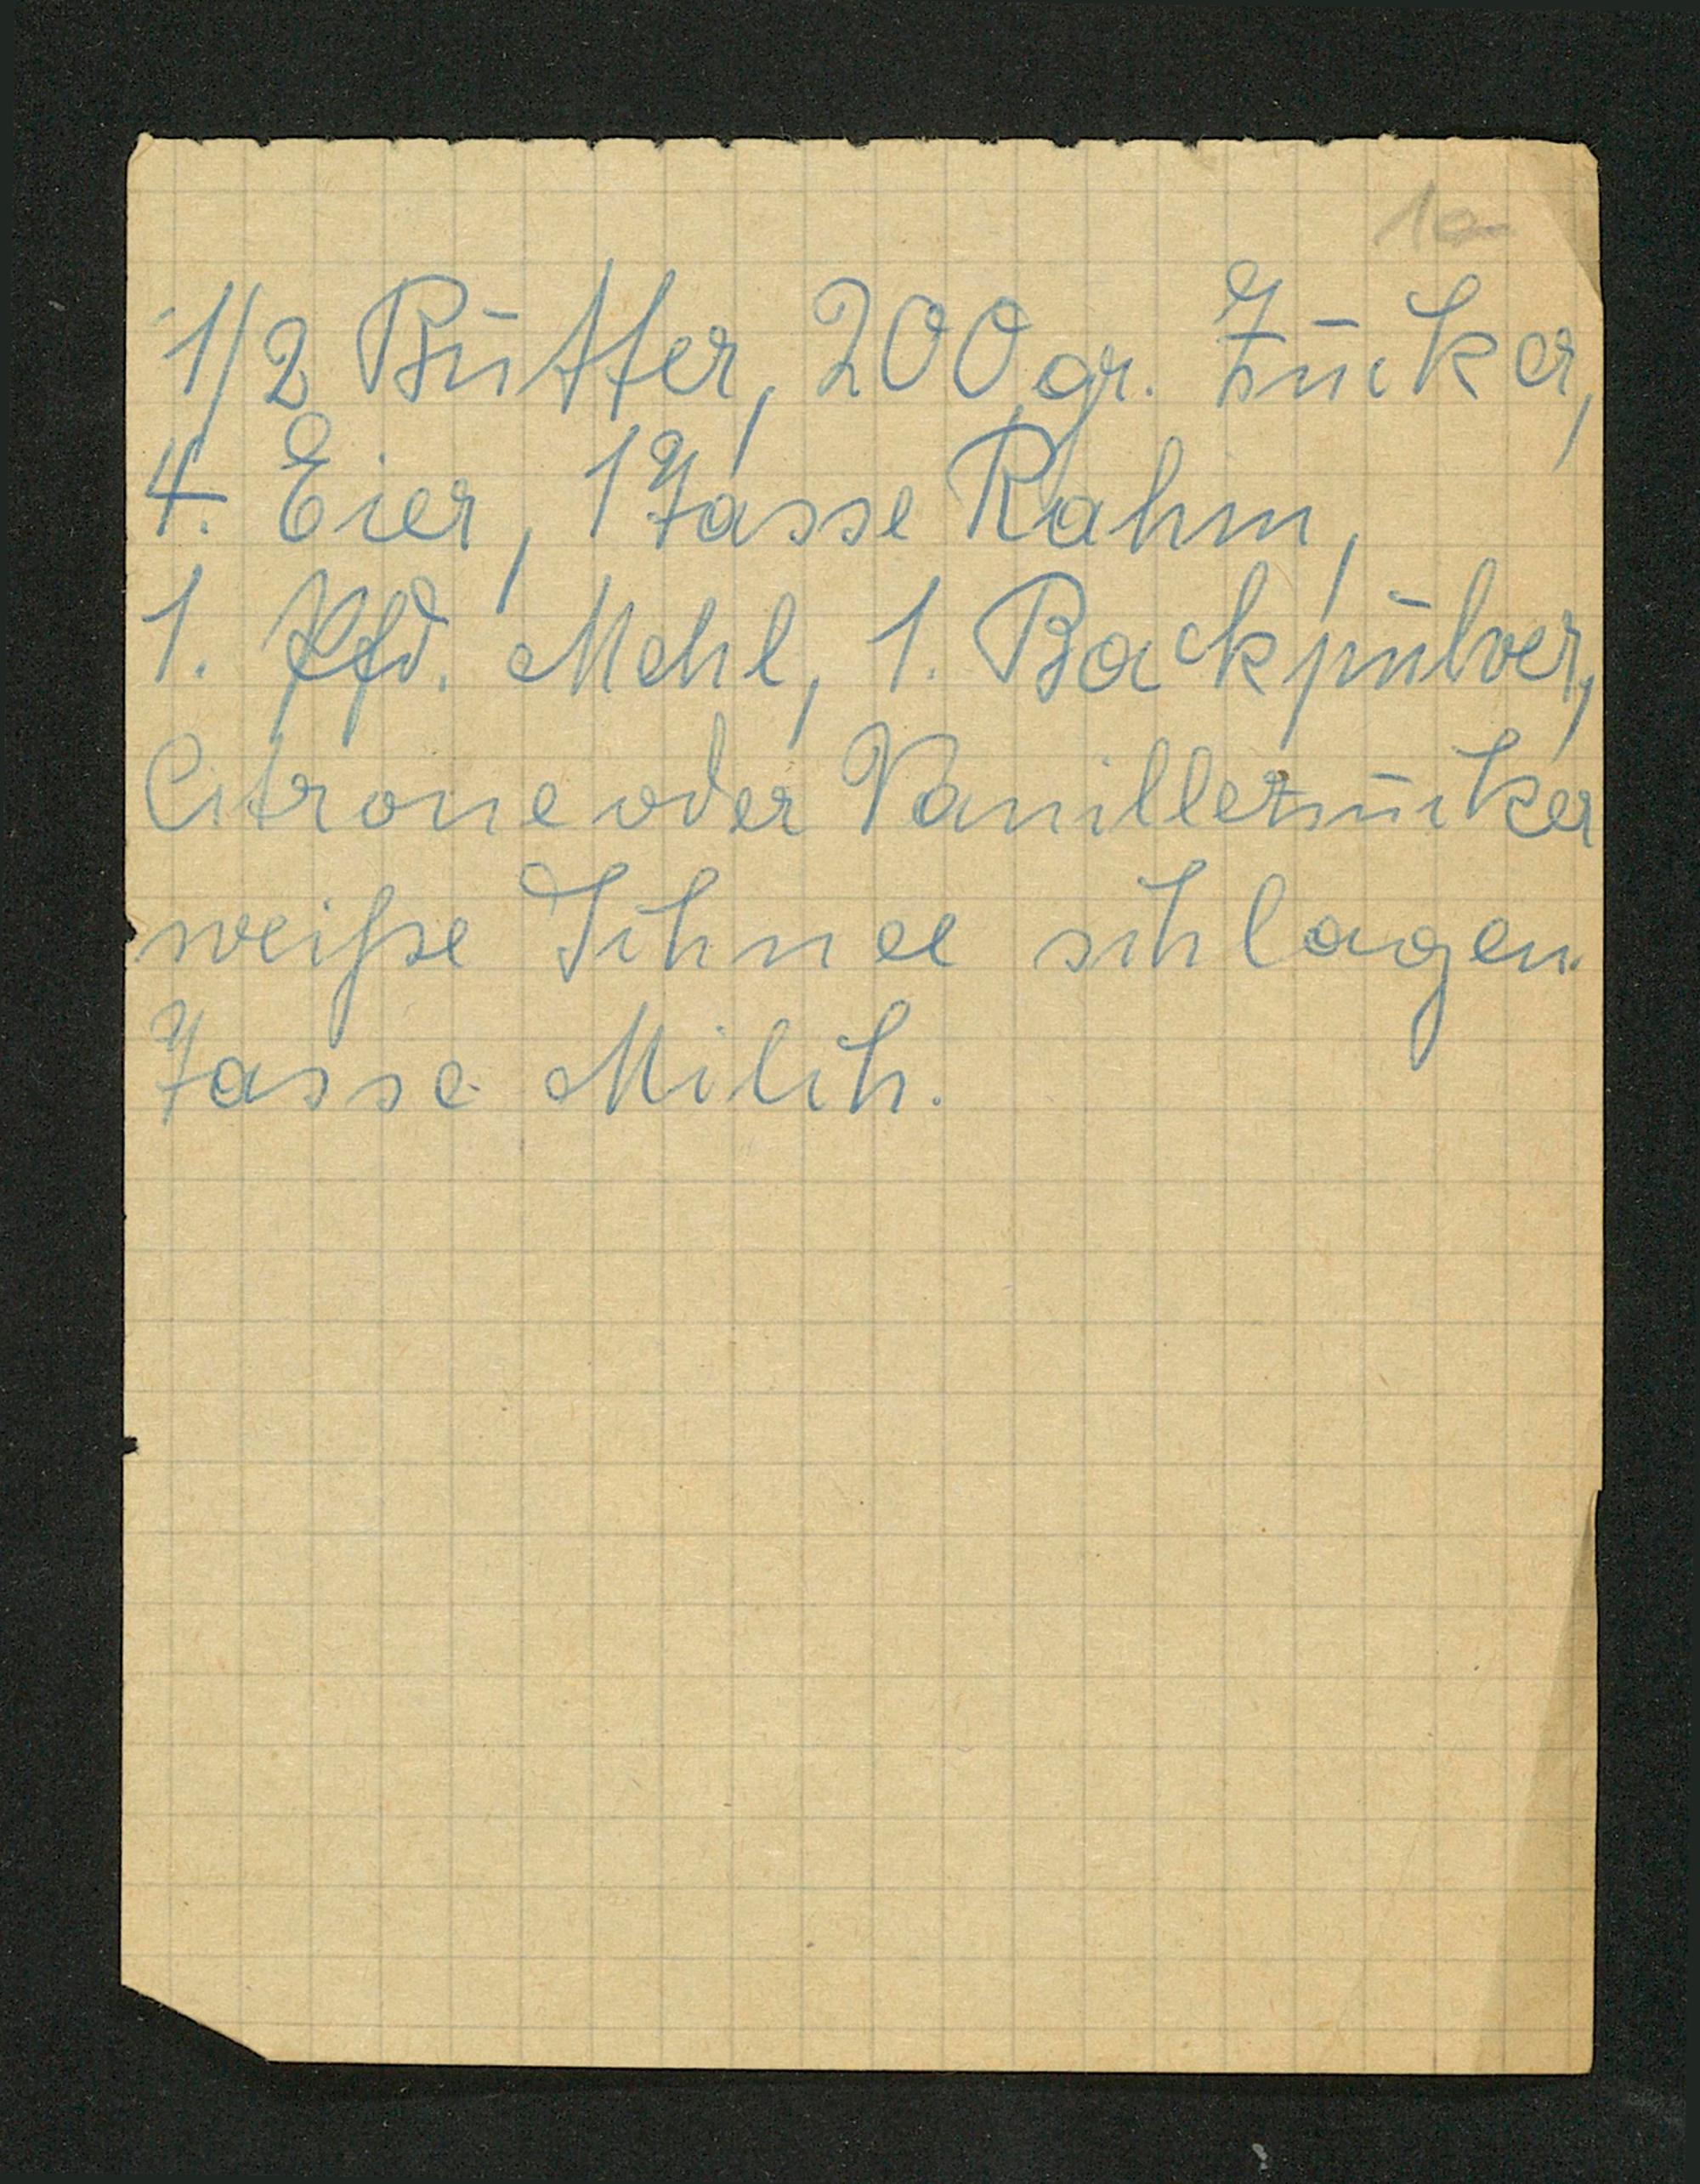 10
1/2 Butter, 200 gr. Zucker,
4. Eier, 1 Tasse Rahm,
1. Pfd. Mehl, 1. Backpulver,
Citrone oder Vanillezucker
weiße Schnee schlagen.
Tasse Milch.